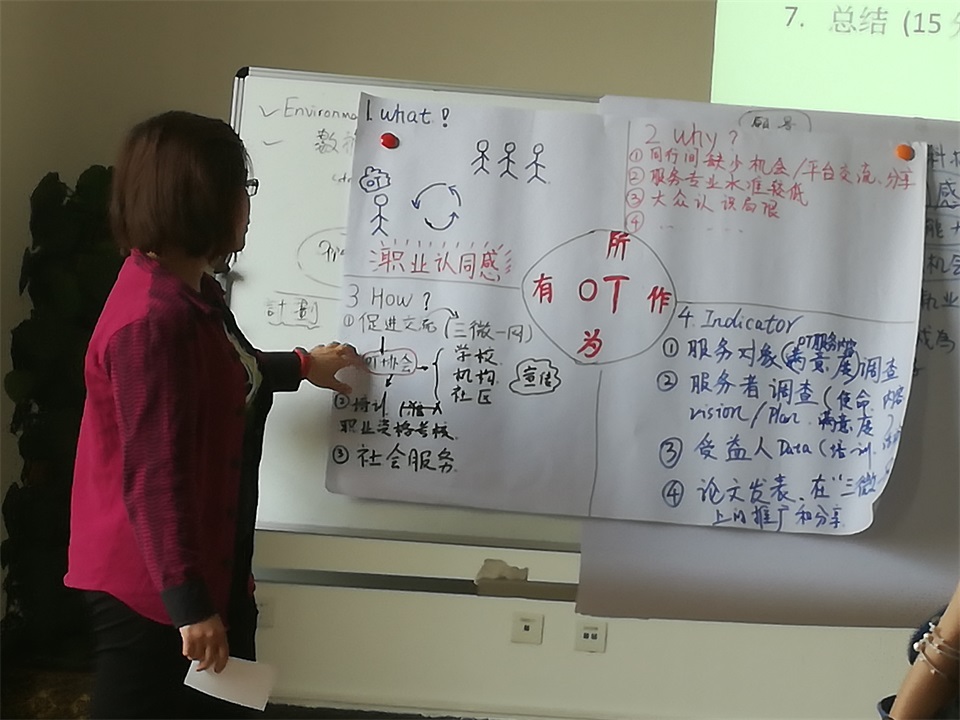 7. 总结 (15
Environme
計劃
1. what?
OT
职业认同感
2 why?
① 同行间缺少机会/平台交流、分享
② 服务专业水准较低
③ 大众认识局限
④
所
有 OT 作
为
3 How?
① 促进交流 (三微一网)
协会
学校
机构
社区
宣传
② 培训
职业资格考核
③ 社会服务
4. Indicator
① 服务对象(满意度)调查
OT服务
② 服务者调查(使命, 内容
vision/Plan, 满意度)
③ 受益人Data(培训,
④ 论文发表、在"三微一
上的推广和分享